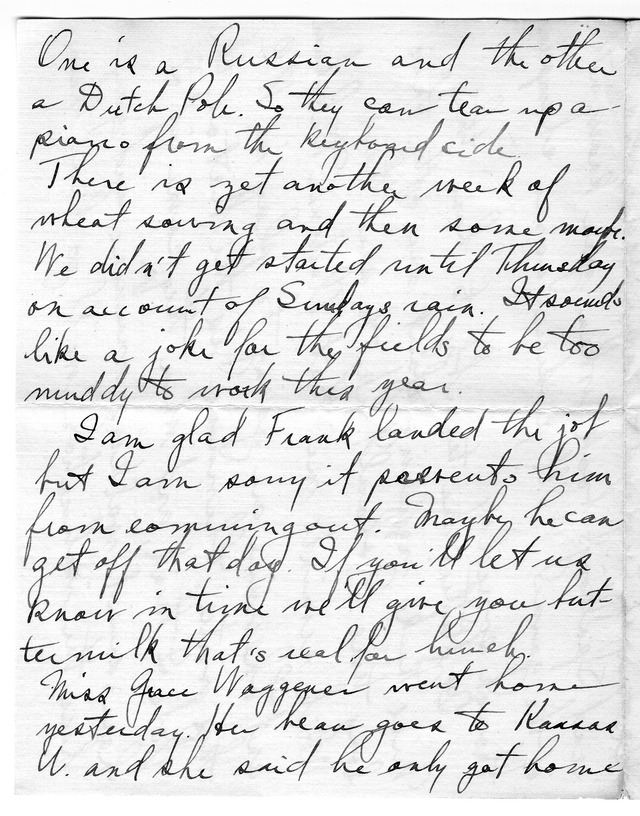 One is a Russian and the other
a Dutch Pole. So they can tear up a
piano from the keyboard side.
There is yet another week of
wheat sowing and then some maybe.
We didn't get started until Thursday
on account of Sundays rain. It sounds
like a joke for the fields to be too
muddy to work this year.
I am glad Frank landed the job
but I am sorry it prevents him
from comming out. Maybe he can
get off that day. If you'll let us
know in time we'll give you but-
termilk that's real for lunch.
Miss Grace Waggener went home
yesterday. Her beau goes to Kansas
U. and she said he only got home